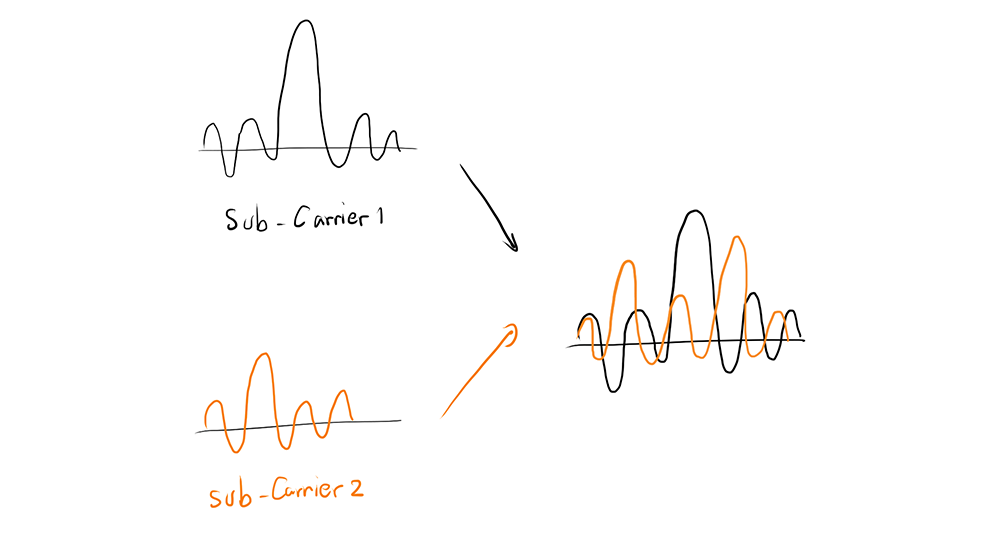 Sub - Carrier 1
Sub - Carrier 2